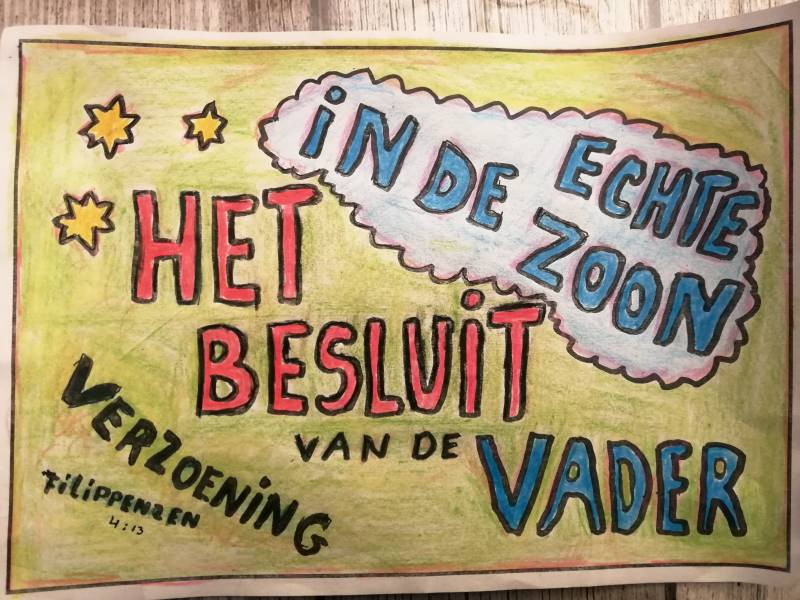 IN DE ECHTE
ZOON
HET
BESLUIT
VAN DE VADER
VERZOENING
FILIPPENZEN
4:13